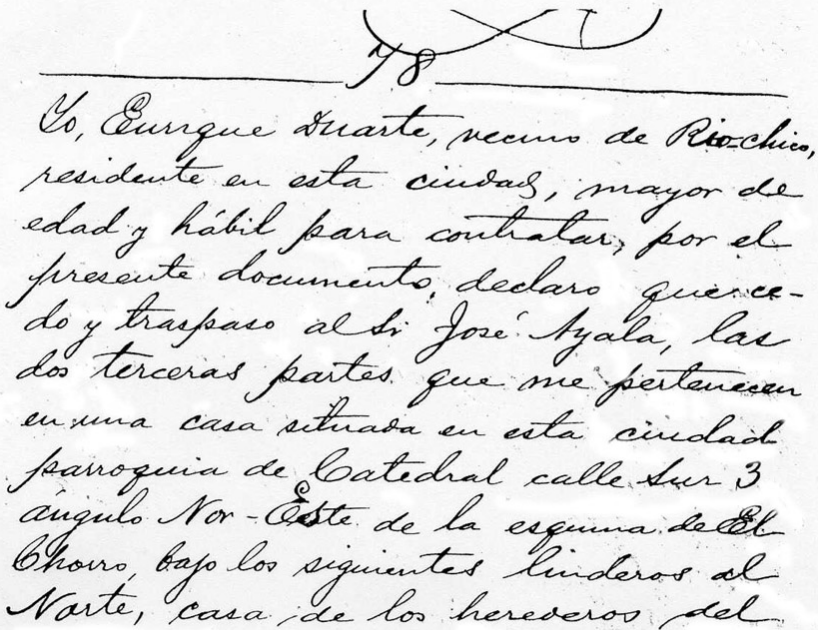 78
Yo, Enrique Duarte, vecino de Rio-chico,
residente en esta ciudad, mayor de
edad y hábil para contratar, por el
presente documento, declaro que ce-
do y traspaso al Sr José Ayala, las
dos terceras partes que me pertenecen
en una casa situada en esta ciudad
parroquia de Catedral calle Sur 3
ángulo Nor-Este de la esquina de El
Chorro, bajo los siguientes linderos al
Norte, casa de los herederos del